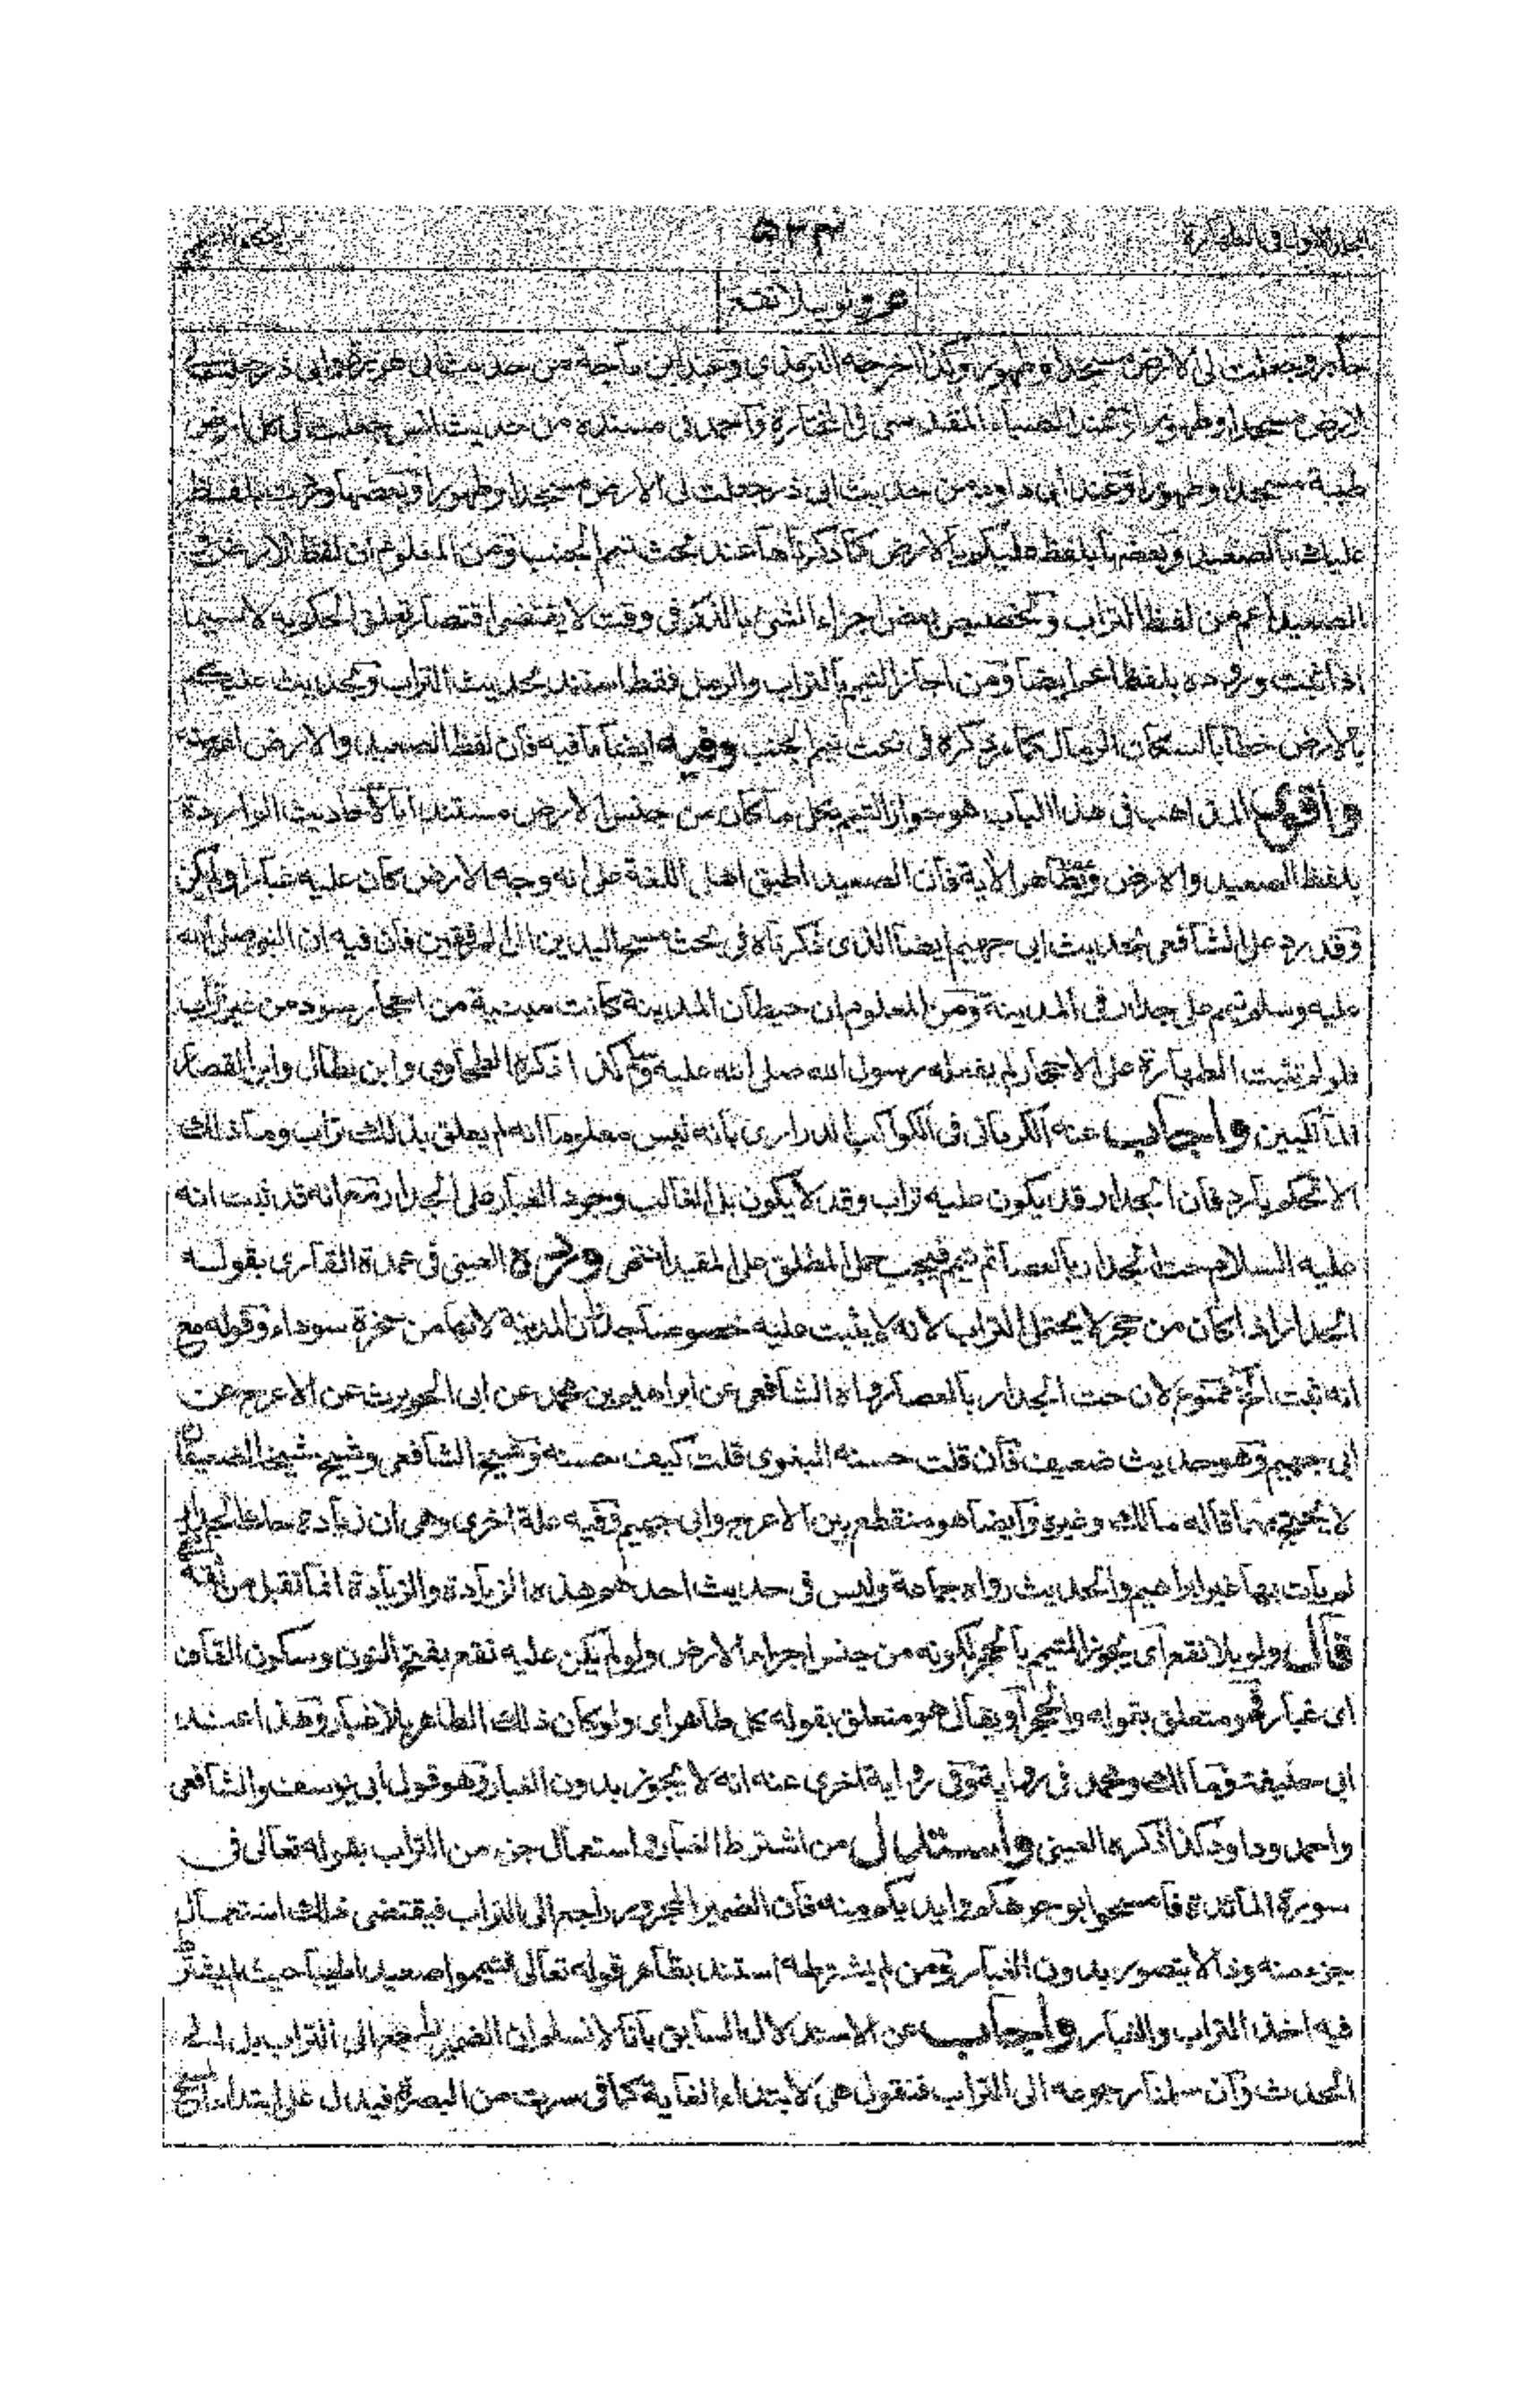 الجلد الاول فى الطهارة ٥٢٣
ولو بلا نقع
جابر وجعلت لى الارض مسجدا وطهورا وكذا اخرجه الترمذى وعند ابن ماجة من حديث ابى هريرة وابى ذر جعلت لى
الارض مسجدا وطهورا وعند الضياء المقدسى فى المختارة واحمد فى مسنده من حديث انس جعلت لى كل ارض
طيبة مسجدا وطهورا وعند ابى داود من حديث ابى ذر جعلت لى الارض مسجدا وطهورا وبعضها وردت بلفظ
عليك بالصعيد وبعضها بلفظ عليكم بالارض كما ذكرناها عند بحث تيمم الجنب ومن المعلوم ان لفظ الارض و
الصعيد اعم من لفظ التراب وتخصيص بعض اجزاء الشئ بالذكر فى وقت لا يقتضى اقتصار تعلق الحكم به لا سيما
اذا ثبت وروده بلفظ اعم ايضا ومن اجاز التيمم بالتراب والرمل فقط استند بحديث التراب وبحديث عليكم
بالارض خطابا لسكان الرمال كما مر ذكره فى بحث تيمم الجنب وفيه ايضا ما فيه فان لفظ الصعيد والارض اعم منه
واقوى المذاهب فى هذا الباب هو جواز التيمم بكل ما كان من جنس الارض مستندا بالاحاديث الواردة
بلفظ الصعيد والارض وبظاهر الآية فان الصعيد اطبق اهل اللغة على انه وجه الارض كان عليه غبار او لم يكن
وقد يرد على الشافعى بحديث ابى جهيم ايضا الذى ذكرناه فى بحث مسح اليدين الى المرفقين فان فيه ان النبى صلى الله
عليه وسلم تيمم على جدار فى المدينة ومن المعلوم ان حيطان المدينة كانت مبنية من احجار سود من غير تراب
فلو لم تثبت الطهارة على الاحجار لم يفعله رسول الله صلى الله عليه وسلم كذا ذكره الطحاوى وابن بطال وابن القصار
المالكيين واجاب عنه الكرمانى فى الكواكب الدرارى بانه ليس معلوما انه لم يعلق بذلك تراب وما ذلك
الا تحكم بارد فان الجدار قد يكون عليه تراب وقد لا يكون بل الغالب وجود الغبار على الجدار مع انه قد ثبت انه
عليه السلام حت الجدار بالعصا ثم تيمم فيجب حمل المطلق على المقيد انتهى ورده العينى فى عمدة القارى بقوله
الجدار اذا كان من حجر لا يحتمل التراب لانه لا يثبت عليه خصوصا جدران المدينة لانها من صخرة سوداء وقوله مع
انه ثبت الخ ممنوع لان حت الجدار بالعصا رواه الشافعى عن ابراهيم بن محمد عن ابى الحويرث عن الاعرج عن
ابى جهيم وهو حديث ضعيف فان قلت حسنه البغوى قلت كيف حسنه وشيخ الشافعى وشيخ شيخه ضعيفان
لا يحتج بهما قاله مالك وغيره وايضا هو منقطع بين الاعرج وابى جهيم وفيه علة اخرى وهى ان زيادة حك الجدار
لم يات بها غير ابراهيم والحديث رواه جماعة وليس فى حديث احدهم هذه الزيادة والزيادة انما تقبل من ثقة
قال ولو بلا نقع اى يجوز التيمم بالحجر لكونه من جنس اجزاء الارض ولو لم يكن عليه نقع بفتح النون وسكون القاف
اى غبار فهو متعلق بقوله والحجر او يقال هو متعلق بقوله كل طاهر اى ولو كان ذلك الطاهر بلا غبار وهذا عند
ابى حنيفة ومالك ومحمد فى رواية وفى رواية اخرى عنه انه لا يجوز بدون الغبار وهو قول ابى يوسف والشافعى
واحمد وداود كذا ذكره العينى واستدلال من اشترط الغبار واستعمال جزء من التراب بقوله تعالى فى
سورة المائدة فامسحوا بوجوهكم وايديكم منه فان الضمير المجرور راجع الى التراب فيقتضى ذلك استعمال
جزء منه وذا لا يتصور بدون الغبار ومن لم يشترطه استند بظاهر قوله تعالى فتيمموا صعيدا طيبا حيث لم يشترط
فيه اخذ التراب والغبار واجاب عن الاستدلال السابق بانا لا نسلم ان الضمير يرجع الى التراب بل الى
الحدث وان سلمنا رجوعه الى التراب فنقول من لابتداء الغاية كما فى سرت من البصرة فيدل على ابتداء المسح